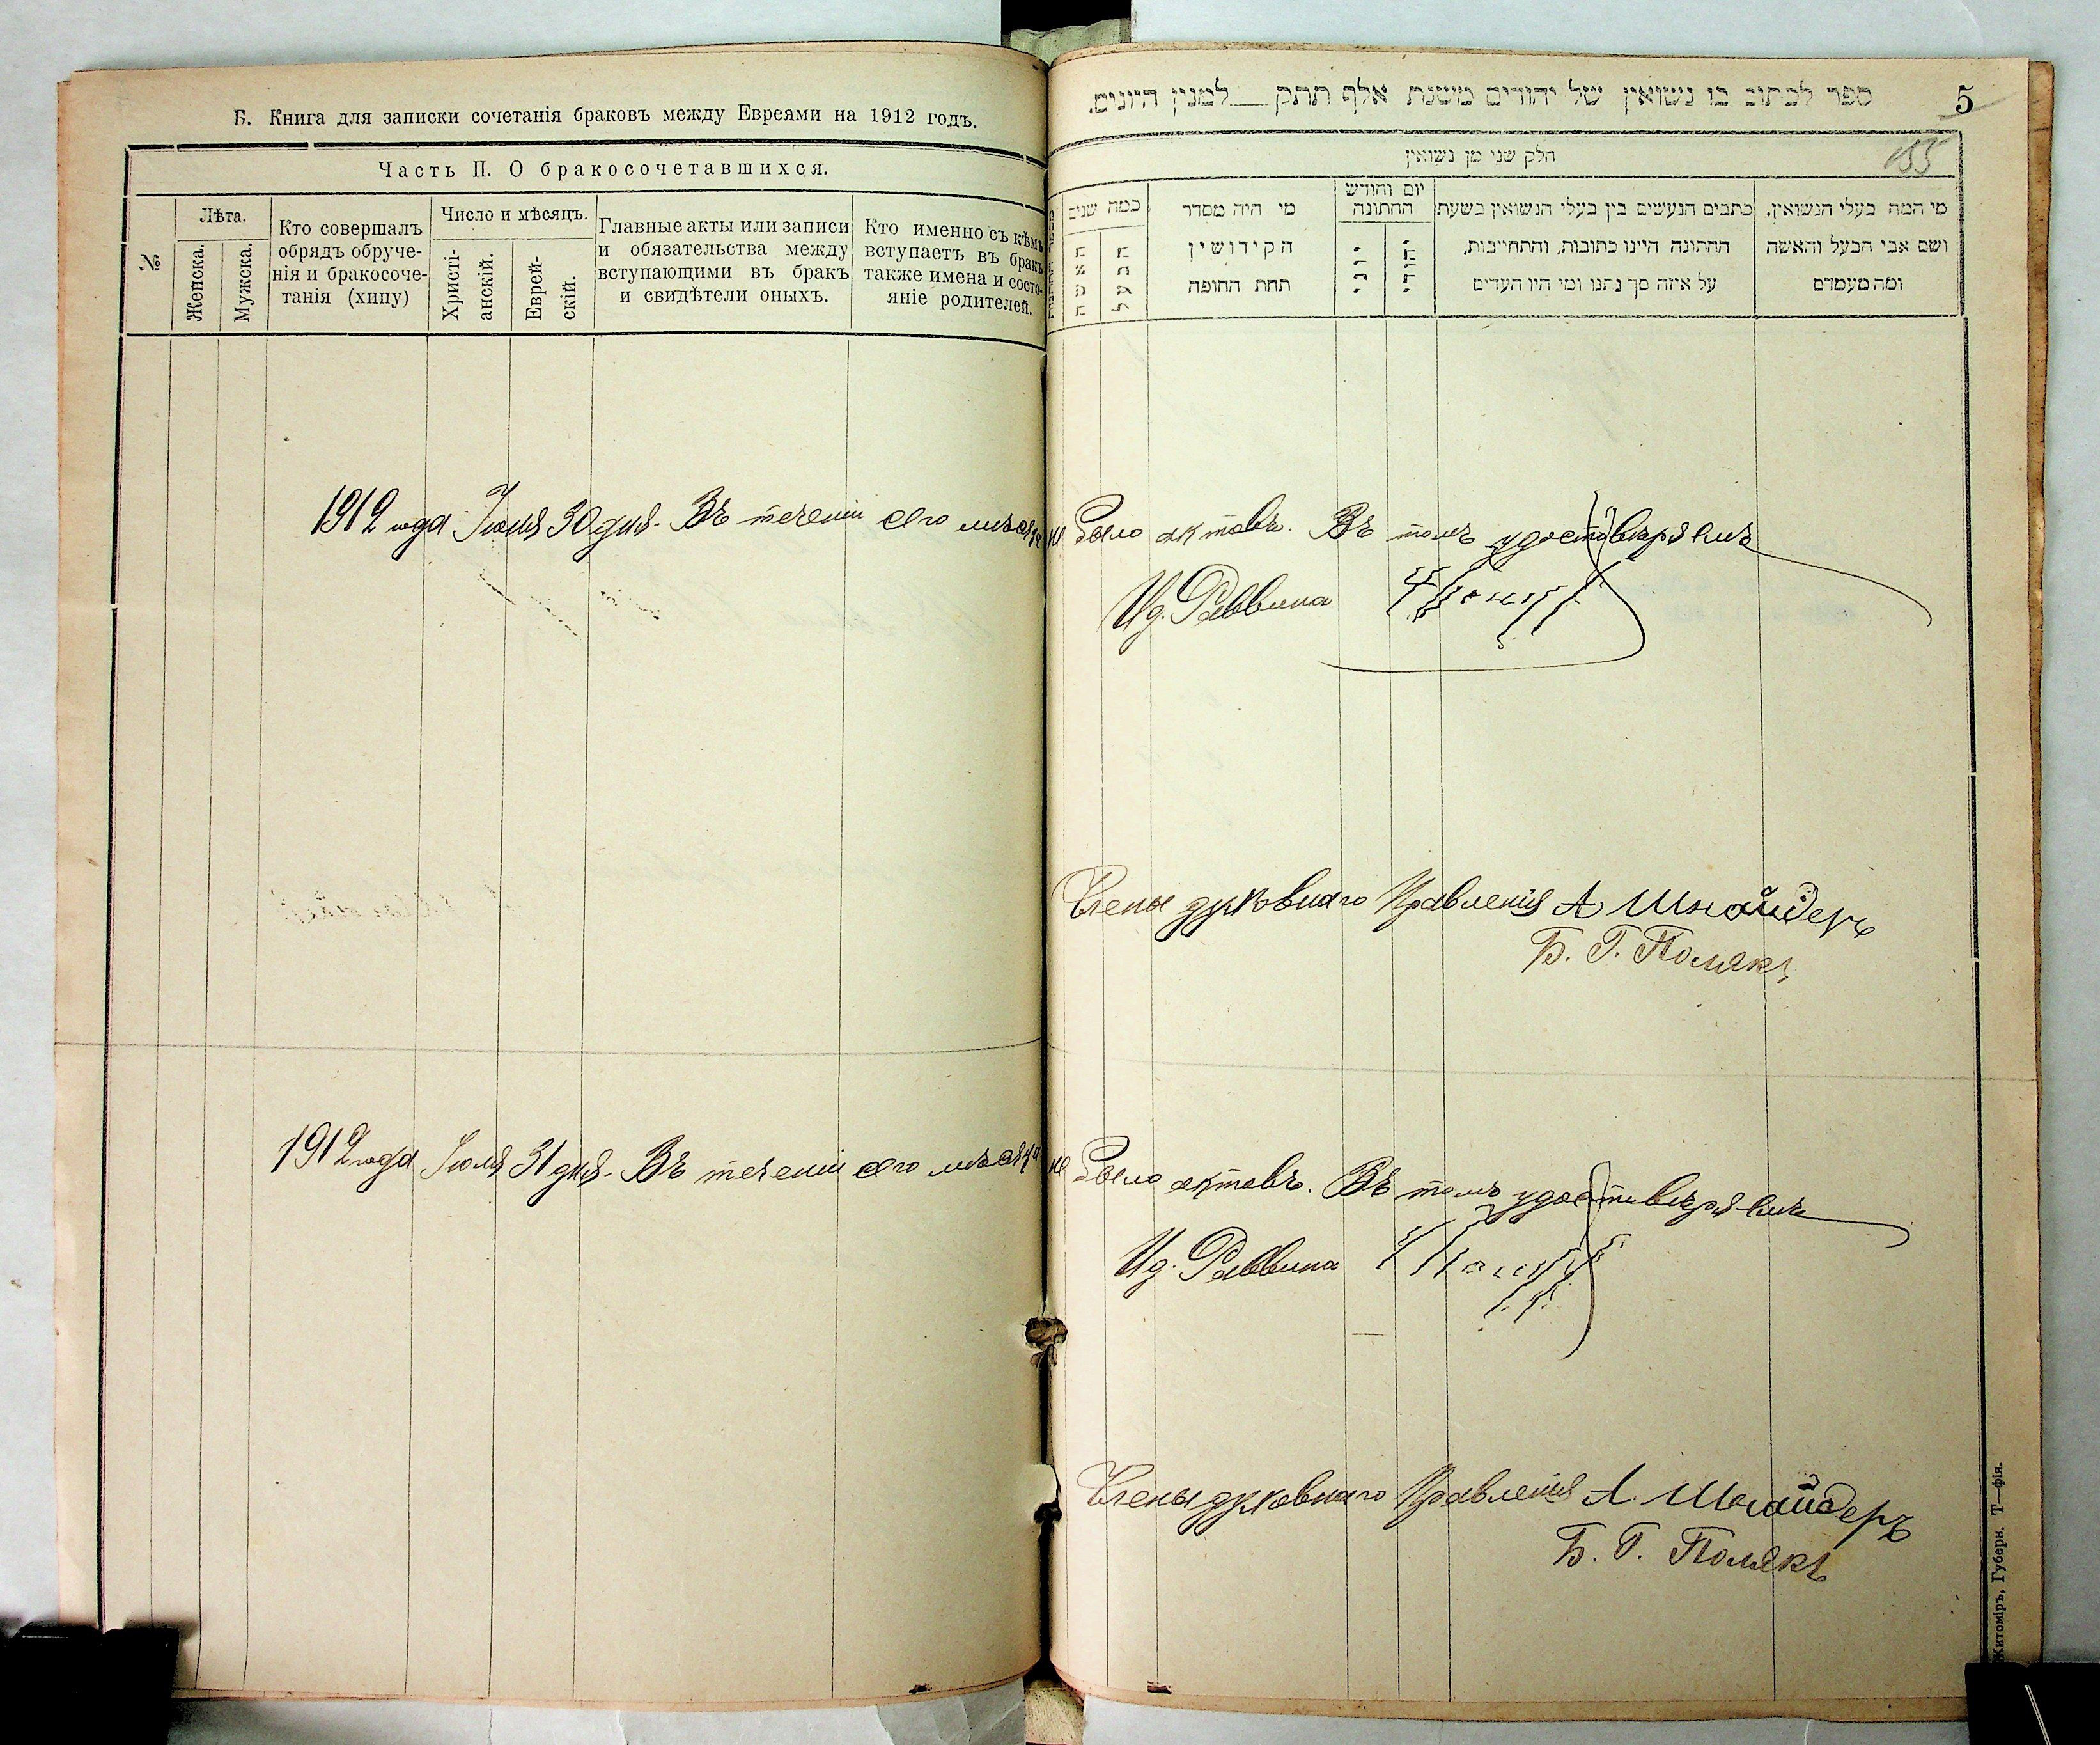 Б. Книга для записки сочетанія браковъ между Евреями на 1912 годъ.
Часть II. О бракосочетавшихся.
№
Лѣта.
Женска.
Мужска.
Кто совершалъ
обрядъ обруче-
нія и бракосоче-
танія (хипу)
Число и мѣсяцъ.
Христі-
анскій.
Еврей-
скій.
Главные акты или записи
и обязательства между
вступающими въ бракъ
и свидѣтели оныхъ.
Кто именно съ кѣмъ
вступаетъ въ бракъ
также имена и состо-
яніе родителей.
ספר לכתוב בו נשואין של יהודים משנת אלף תתק למנין היונים.
5
155
חלק שני מן נשואין
מי המה בעלי הנשואין,
ושם אבי הבעל והאשה
ומה מעמדם
כתבים הנעשים בין בעלי הנשואין בשעת
החתונה היינו כתובות, והתחייבות,
על איזה סך נתנו ומי היו העדים
יום וחודש
החתונה
יהודי
יוני
מי היה מסדר
הקידושין
תחת החופה
כמה שנים
הבעל
האשה
1912 года Іюня 30 дня. Въ теченіи сего мѣсяца не было актовъ. Въ томъ удостовѣряемъ
Ид. Раввина
Члены духовнаго Правленія А Шнайдеръ
Б. Г. Полякъ
1912 года Іюля 31 дня. Въ теченіи сего мѣсяца не было актовъ. Въ томъ удостовѣряемъ
Ид. Раввина
Члены духовнаго Правленія А. Шнайдеръ
Б. Г. Полякъ
Житоміръ, Губерн. Т—фія.